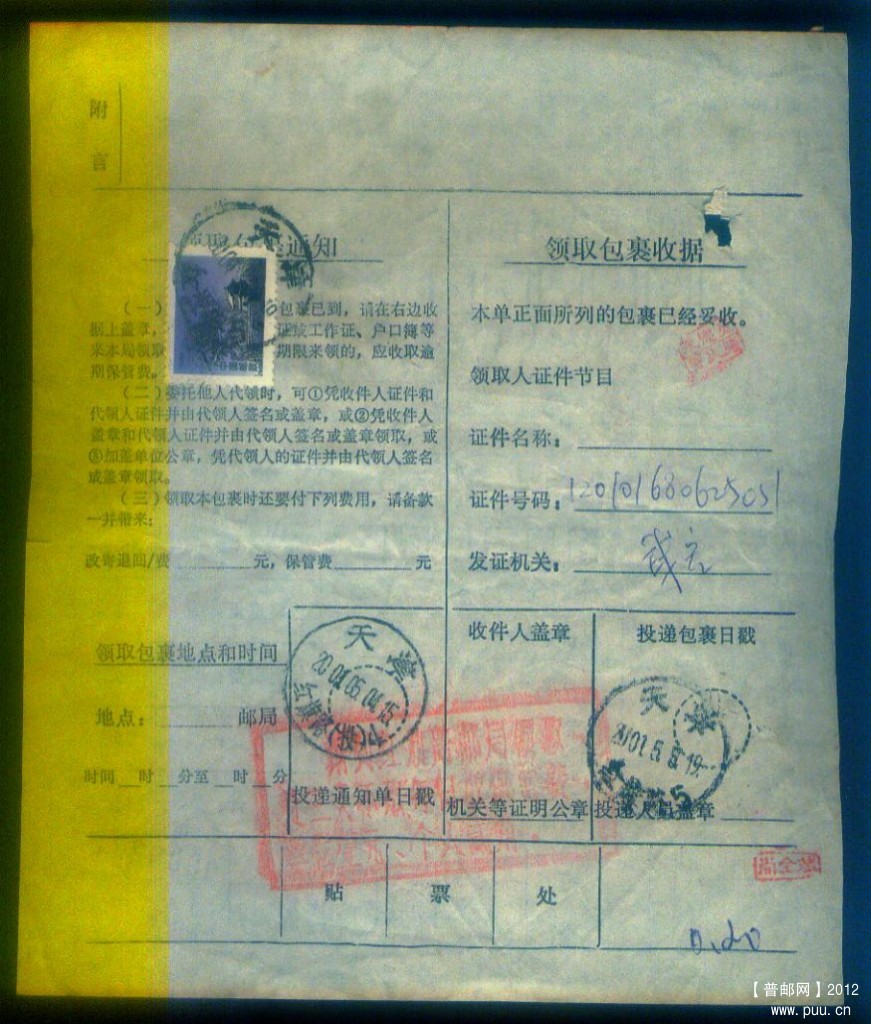 附
言
领取包裹通知
（一） 包裹已到，请在右边收
据上盖章， 证或工作证、户口簿等
来本局领取 期限来领的，应收取逾
期保管费。
（二）委托他人代领时，可①凭收件人证件和
代领人证件并由代领人签名或盖章，或②凭收件人
盖章和代领人证件并由代领人签名或盖章领取，或
③加盖单位公章，凭代领人的证件并由代领人签名
或盖章领取。
（三）领取本包裹时还要付下列费用，请备款
一并带来：
改寄退回/费 元，保管费 元
领取包裹收据
本单正面所列的包裹已经妥收。
领取人证件节目
证件名称：
证件号码：120101680625051
发证机关：
领取包裹地点和时间
地点： 邮局
时间 时 分至 时 分
天津
2001.05.04.15
投递通知单日戳
收件人盖章
机关等证明公章
投递包裹日戳
天津
投递人员盖章
贴 票 处
【普邮网】2012
www.puu.cn